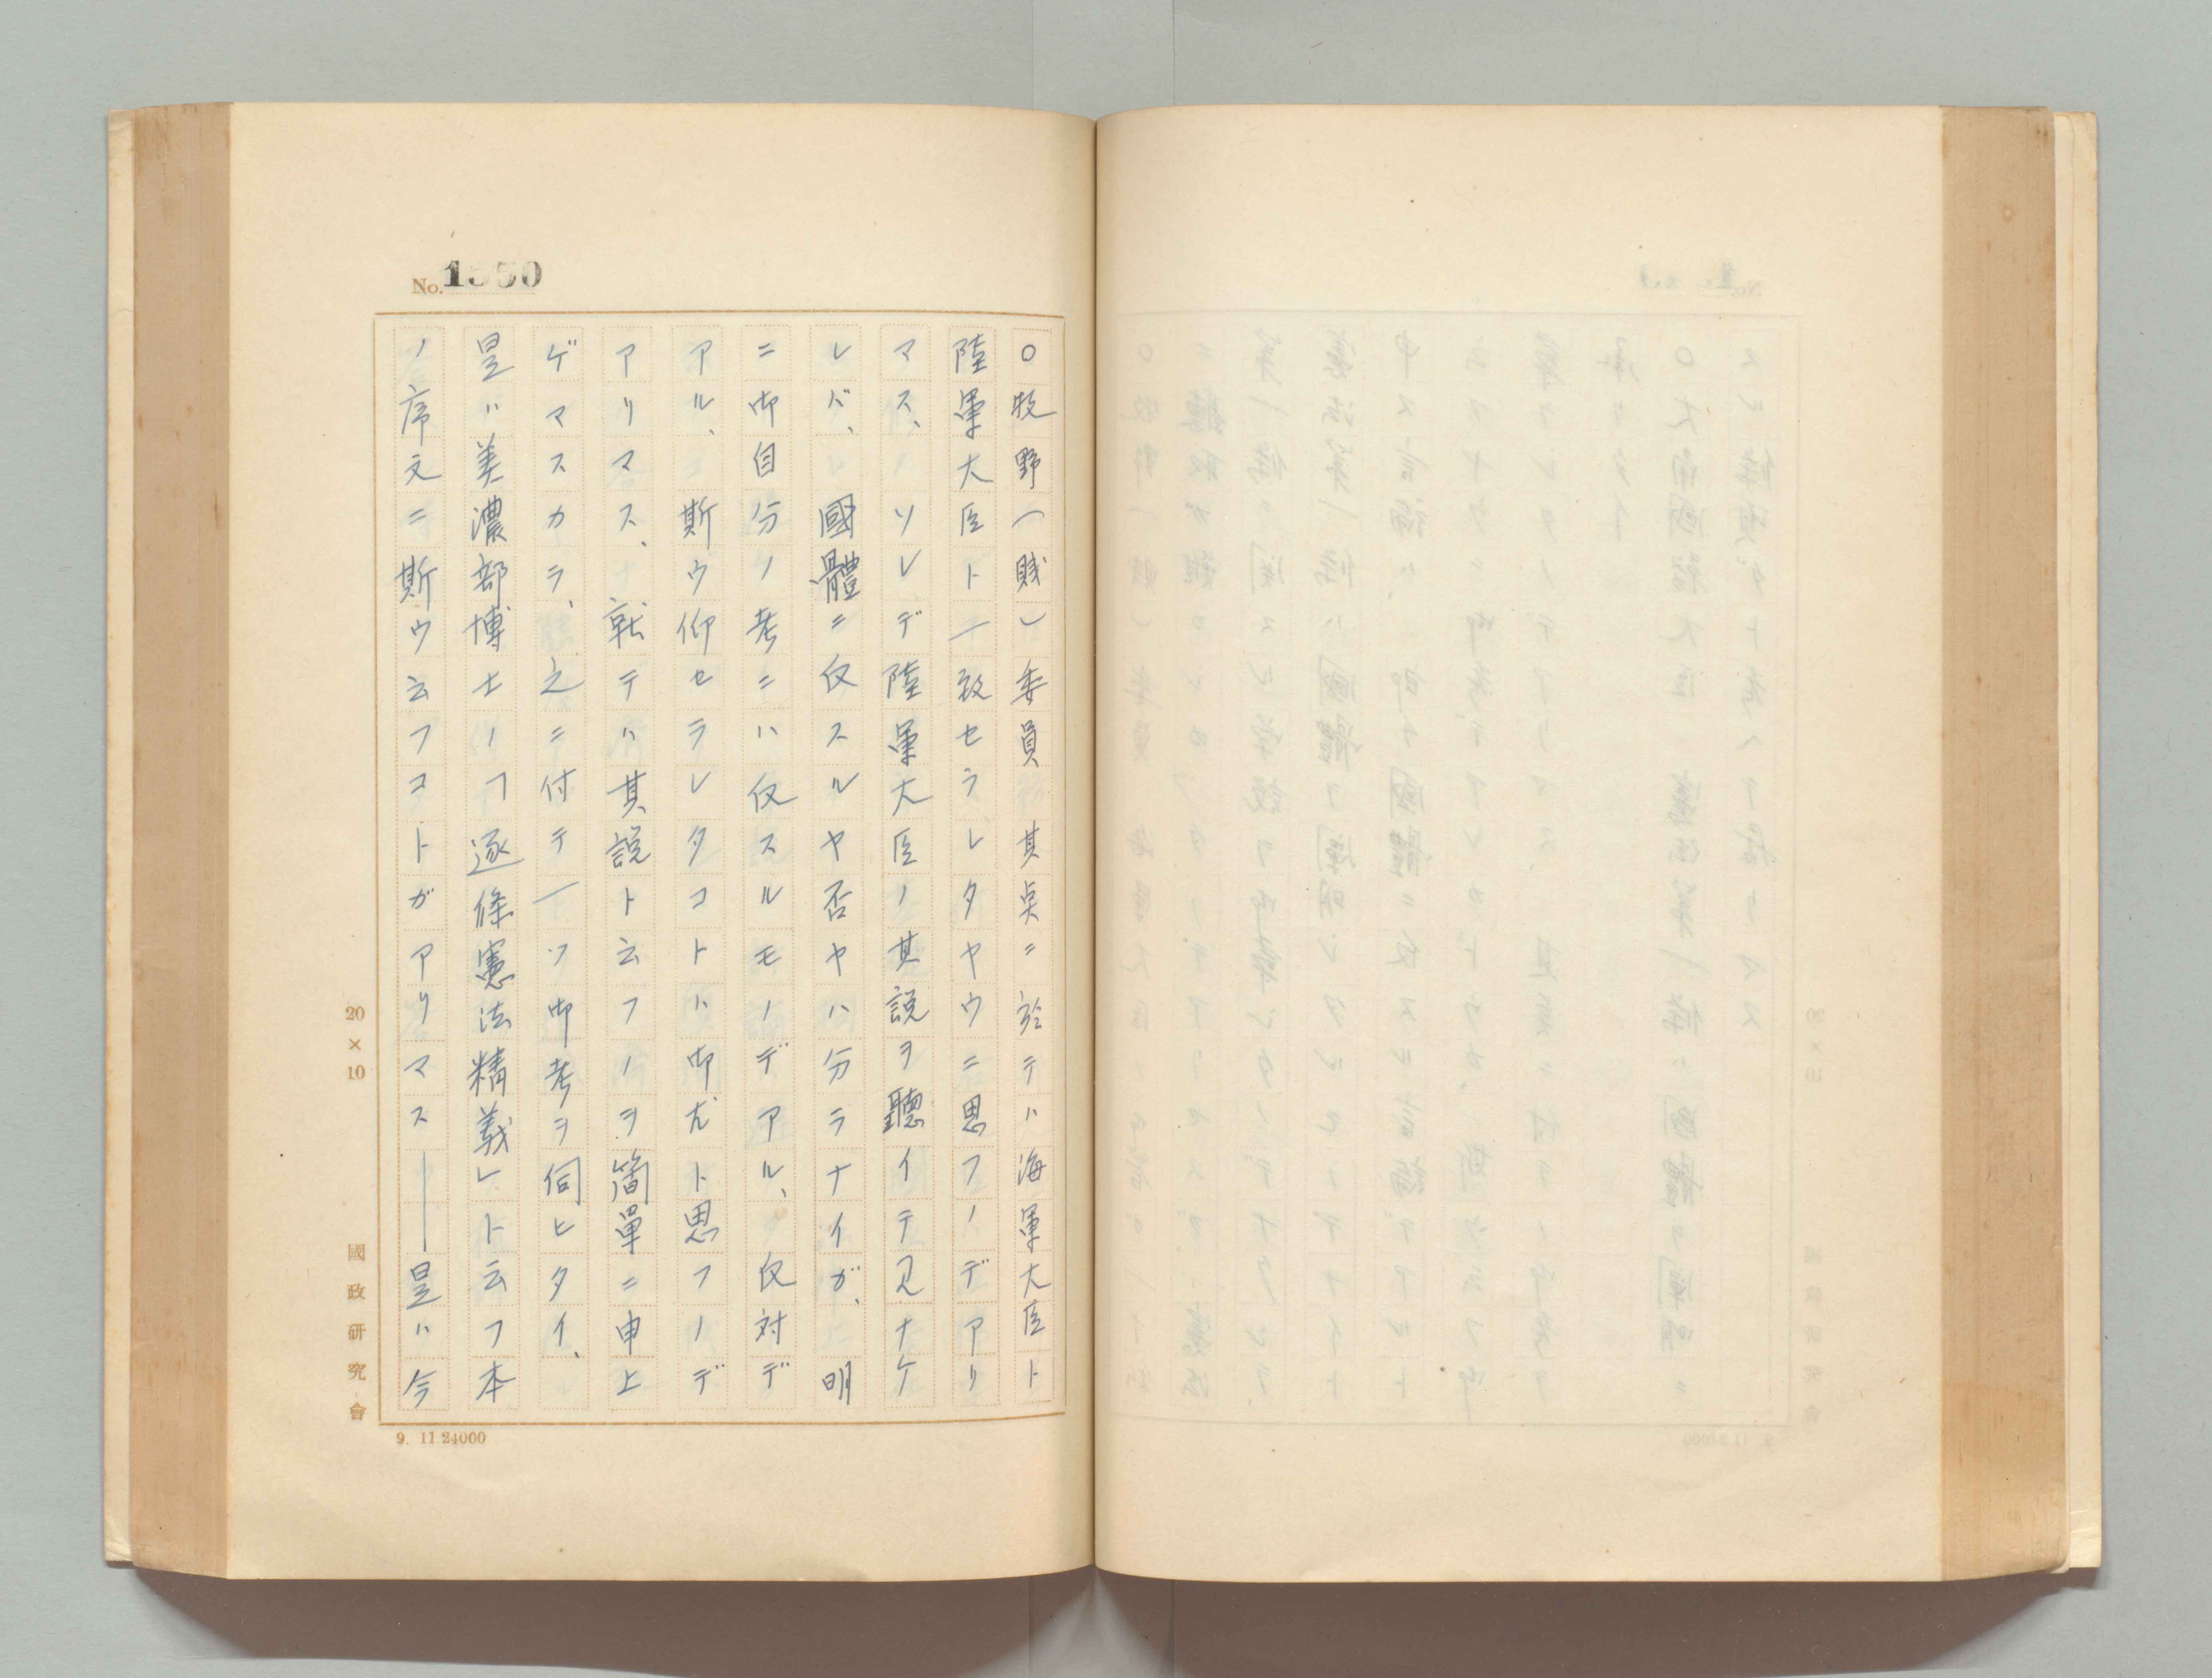 No. 1550
○牧野(賤)委員 其点ニ於テハ海軍大臣ト
陸軍大臣ト一致セラレタヤウニ思フノデアリ
マス、ソレデ陸軍大臣ノ其説ヲ聽イテ見ナケ
レバ、國體ニ反スルヤ否ヤハ分ラナイガ、明
ニ御自分ノ考ニハ反スルモノデアル、反対デ
アル、斯ウ仰セラレタコトハ御尤ト思フノデ
アリマス、就テハ其説ト云フノヲ簡單ニ申上
ゲマスカラ、之ニ付テ一ツ御考ヲ伺ヒタイ、
是ハ美濃部博士ノ「逐條憲法精義」ト云フ本
ノ序文ニ斯ウ云フコトガアリマス——是ハ今
20×10
國政研究會
9. 11 24000